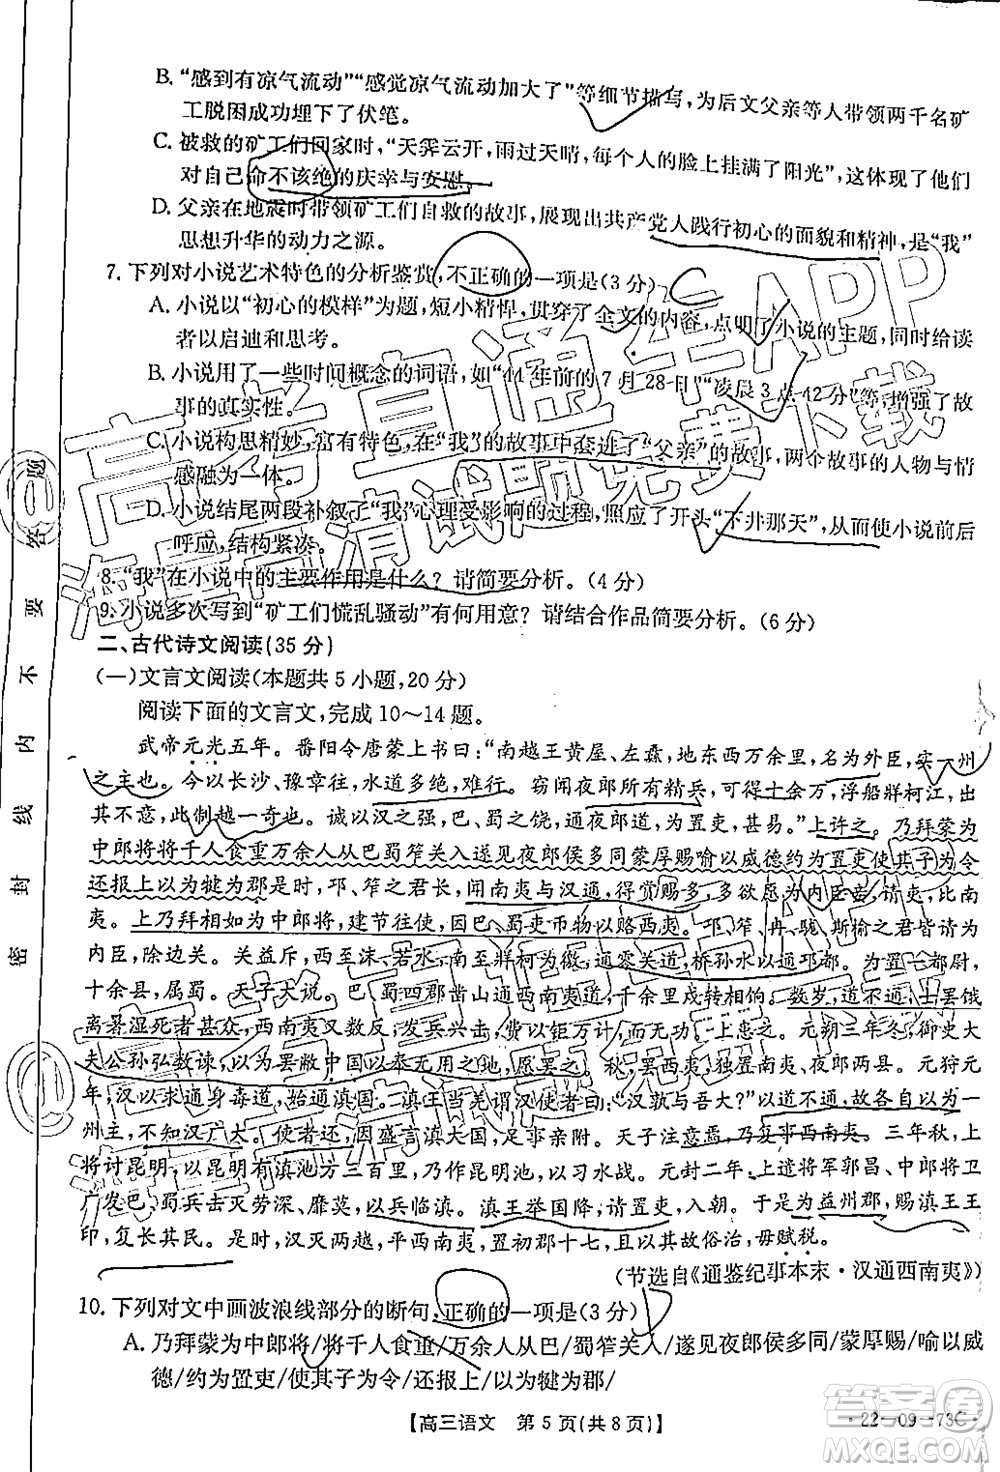 B.“感到有凉气流动”“感觉凉气流动加大了”等细节描写，为后文父亲等人带领两千名矿
工脱困成功埋下了伏笔。
C. 被救的矿工们回家时，“天霁云开，雨过天晴，每个人的脸上挂满了阳光”，这体现了他们
对自己命不该绝的庆幸与安慰。
D. 父亲在地震时带领矿工们自救的故事，展现出共产党人践行初心的面貌和精神，是“我”
思想升华的动力之源。
7. 下列对小说艺术特色的分析鉴赏，不正确的一项是(3 分)
A. 小说以“初心的模样”为题，短小精悍，贯穿了全文的内容，点明了小说的主题，同时给读
者以启迪和思考。
B. 小说用了一些时间概念的词语，如“44 年前的 7 月 28 日”“凌晨 3 点 42 分”等，增强了故
事的真实性。
C. 小说构思精妙，富有特色，在“我”的故事中套进了“父亲”的故事，两个故事的人物与情
感融为一体。
D. 小说结尾两段补叙了“我”心理受影响的过程，照应了开头“下井那天”，从而使小说前后
呼应，结构紧凑。
8.“我”在小说中的主要作用是什么？请简要分析。(4 分)
9. 小说多次写到“矿工们慌乱骚动”有何用意？请结合作品简要分析。(6 分)
二、古代诗文阅读(35 分)
(一)文言文阅读(本题共 5 小题，20 分)
阅读下面的文言文，完成 10～14 题。
武帝元光五年。番阳令唐蒙上书曰：“南越王黄屋、左纛，地东西万余里，名为外臣，实一州
之主也。今以长沙、豫章往，水道多绝，难行。窃闻夜郎所有精兵，可得十余万，浮船牂柯江，出
其不意，此制越一奇也。诚以汉之强，巴、蜀之饶，通夜郎道，为置吏，甚易。”上许之。乃拜蒙为
中郎将将千人食重万余人从巴蜀筰关入遂见夜郎侯多同蒙厚赐喻以威德约为置吏使其子为令
还报上以为犍为郡是时，邛、筰之君长，闻南夷与汉通，得赏赐多，多欲愿为内臣妾，请吏，比南
夷。上乃拜相如为中郎将，建节往使，因巴、蜀吏币物以赂西夷。邛、筰、冉、駹、斯榆之君皆请为
内臣，除边关。关益斥，西至沫、若水，南至牂柯为徼，通零关道，桥孙水以通邛都，为置一都尉、
十余县，属蜀。天子大说。巴、蜀四郡凿山通西南夷道，千余里戍转相饷。数岁，道不通，士罢饿
离暑湿死者甚众，西南夷又数反，发兵兴击，费以钜万计，而无功。上患之。元朔三年冬，御史大
夫公孙弘数谏，以为罢敝中国以奉无用之地，愿罢之。秋，罢西夷，独置南夷。元狩元
年，汉以求通身毒道，始通滇国。滇王当羌谓汉使者曰：“汉孰与吾大？”以道不通，故各自以为一
州主，不知汉广大。使者还，因盛言滇大国，足事亲附。天子注意焉，乃复事西南夷。三年秋，上
将讨昆明，以昆明有滇池方三百里，乃作昆明池，以习水战。元封二年，上遣将军郭昌、中郎将卫
广发巴、蜀兵击灭劳深、靡莫，以兵临滇。滇王举国降，请置吏，入朝。于是为益州郡，赐滇王王
印，复长其民。是时，汉灭两越，平西南夷，置初郡十七，且以其故俗治，毋赋税。
(节选自《通鉴纪事本末·汉通西南夷》)
10. 下列对文中画波浪线部分的断句，正确的一项是(3 分)
A. 乃拜蒙为中郎将/将千人食重/万余人从巴/蜀筰关入/遂见夜郎侯多同/蒙厚赐/喻以威
德/约为置吏/使其子为令/还报上/以为犍为郡/
【高三语文　第 5 页(共 8 页)】
·22－09－73C·
密 封 线 内 不 要 答 题
高考直通车APP
海量高清试题免费下载
高考直通车APP
海量高清试题免费下载
答案圈
MXQE.COM